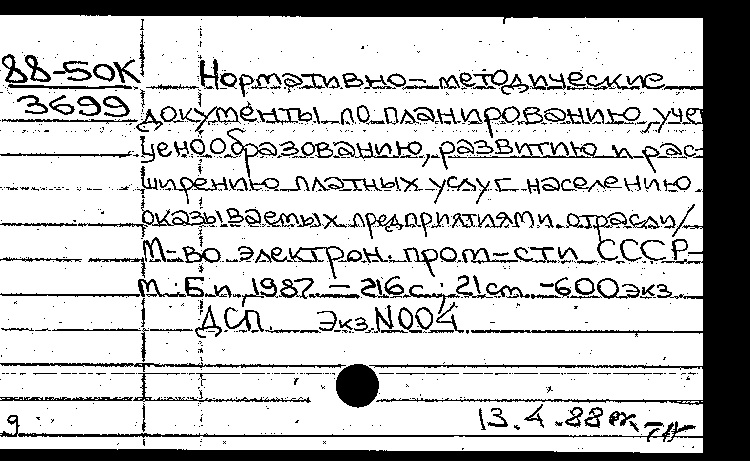 88-50К Нормативно-методические
3699 документы по планированию, учет
ценообразованию, развитию и рас-
ширению платных услуг населению
оказываемых предприятиями отрасли/
М-во электрон. пром-сти СССР-
М.: Б.и, 1987. - 216с.; 21см. -600экз
ДСП. Экз N004
9 13.4.88